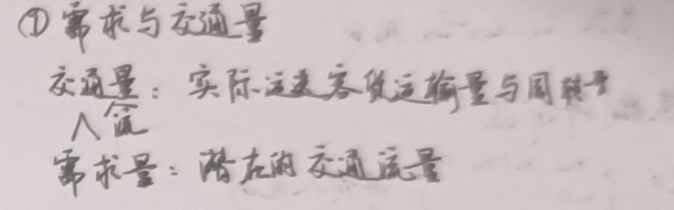 ①需求与交通量
交通量：实际运送客货运输量与周转
八值
需求量：潜在的交通流量